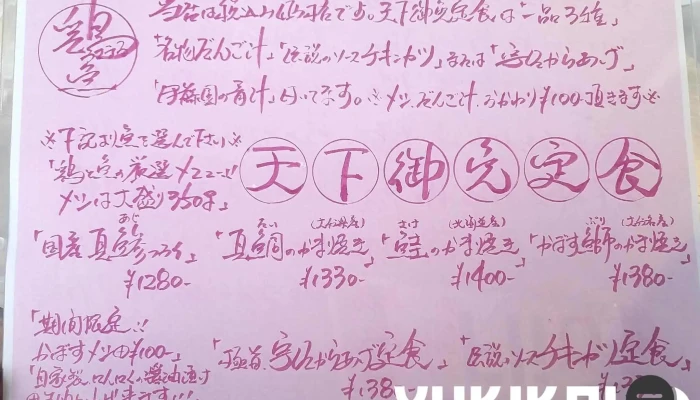 当店は税込み価格です。天下御免定食は「一品3種」
「名物だんご汁」「伝説のソースチキンカツ」または「宇佐からあげ」
「伊藤園の青汁」付いてます。※メシ、だんご汁、おかわり¥100-頂きます※
※下記より魚を選んで下さい※
「鶏と魚の厳選メニュー!!
メシは大盛り350g」
天下御免定食
あじ
「国産真鯵のフライ」
¥1280-
たい (大分県産)
「真鯛のかま焼き」
¥1330-
さけ (北海道産)
「鮭のかま焼き」
¥1400-
ぶり (大分県産)
「かぼす鰤のかま焼き」
¥1380-
「期間限定!!
かぼす
¥100-」
「自家製にんにく醤油漬け
「極旨、宇佐からあげ定食」
¥138
「伝説のソースチキンカツ定食」